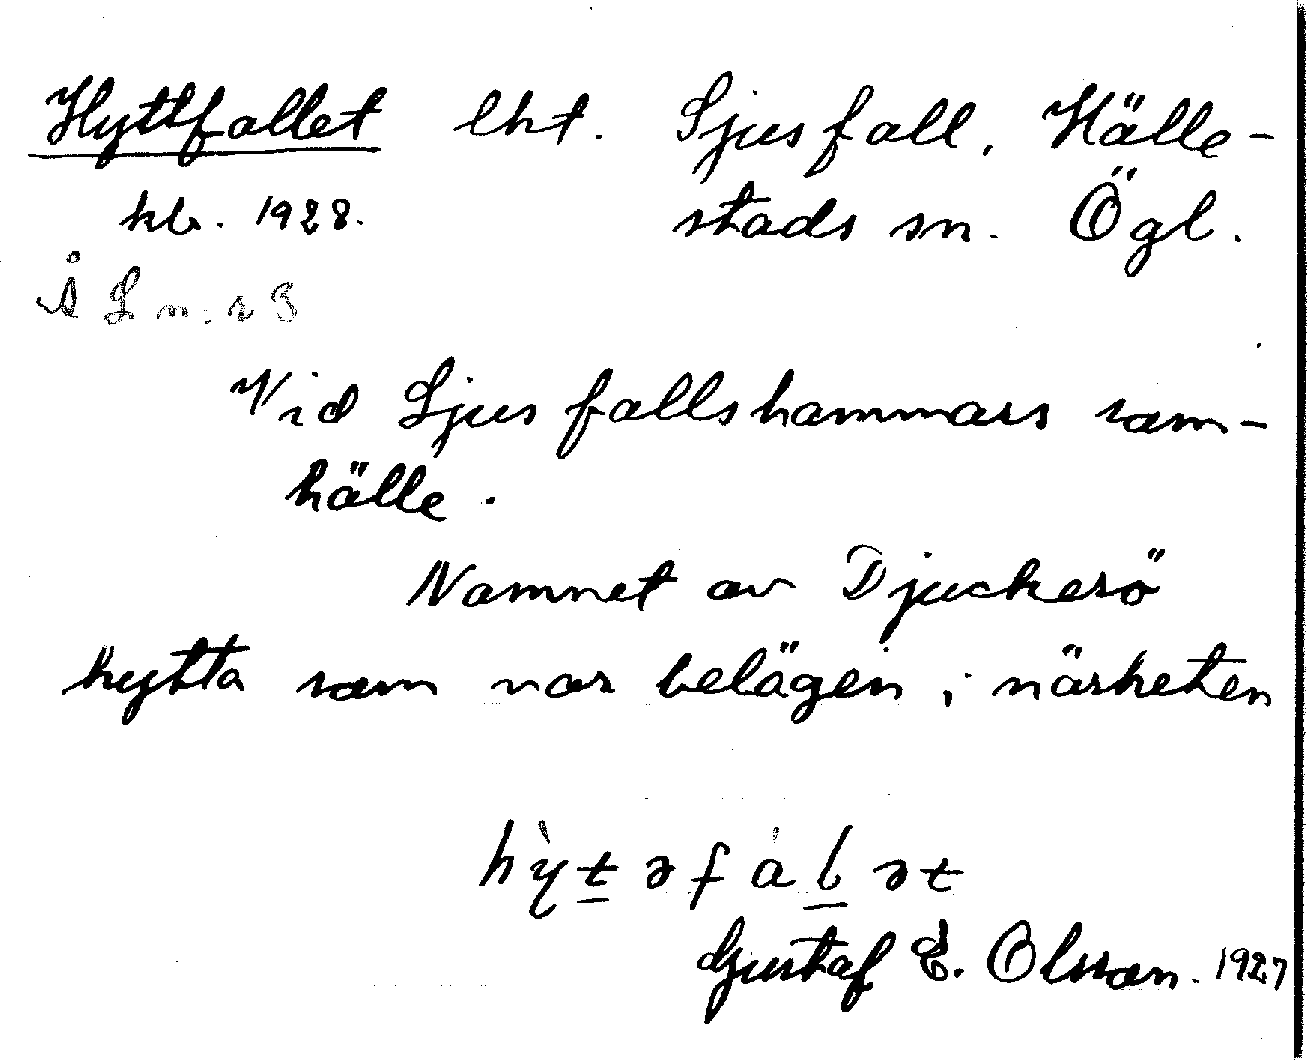 Hyttfallet lht. Ljusfall, Hälle-
klr. 1928. stads sn. Ögl.
Vid Ljusfallshammars sam-
hälle.
Namnet av Djuckerö
hytta som var belägen i närheten
hỳt̲əfàl̲ət
Gustaf E. Olsson. 1927